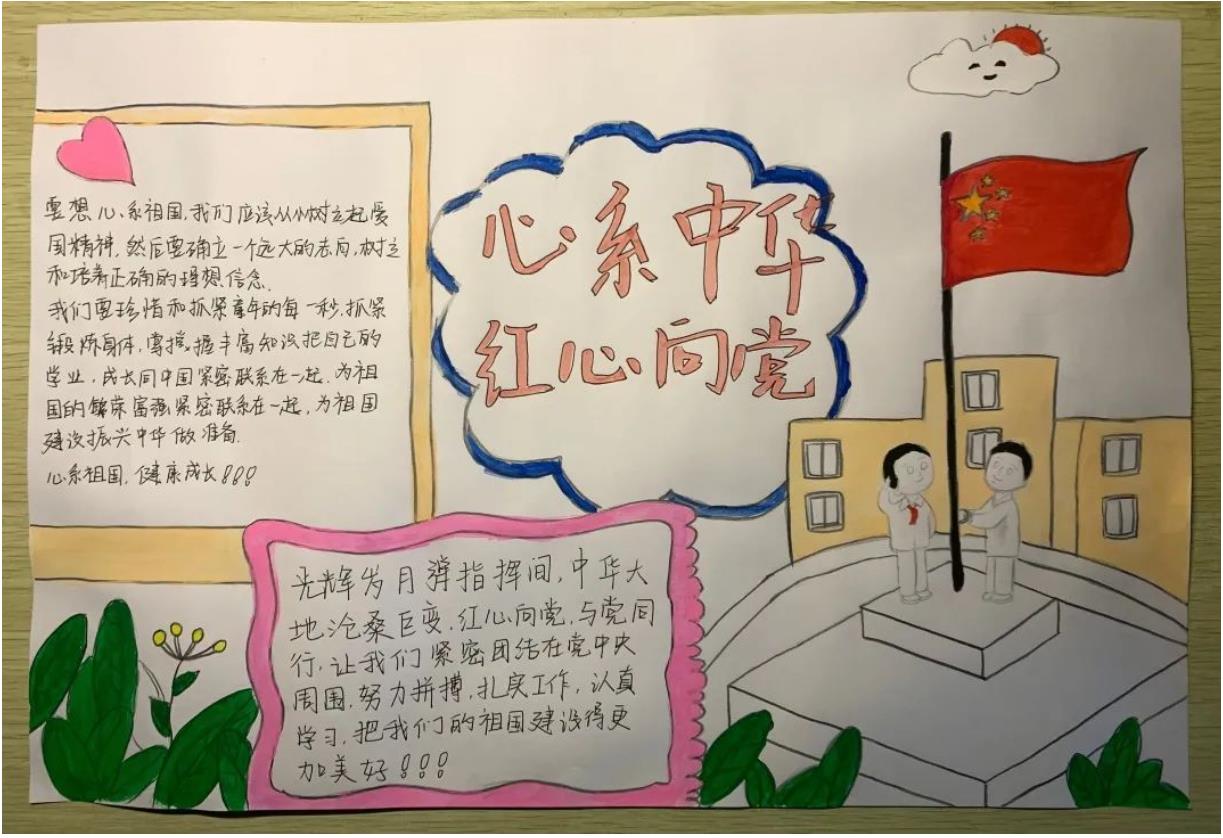 心系中华
红心向党
要想心系祖国,我们应该从小树立起爱
国精神,然后要确立一个远大的志向,树立
和培养正确的理想信念.
我们要珍惜和抓紧童年的每一秒,抓紧
锻炼身体,掌握丰富知识把自己的
学业,成长同中国紧密联系在一起.为祖
国的繁荣富强紧密联系在一起,为祖国
建设振兴中华做准备.
心系祖国,健康成长!!!
光辉岁月弹指挥间,中华大
地沧桑巨变.红心向党,与党同
行.让我们紧密团结在党中央
周围.努力拼搏,扎实工作,认真
学习.把我们的祖国建设得更
加美好!!!